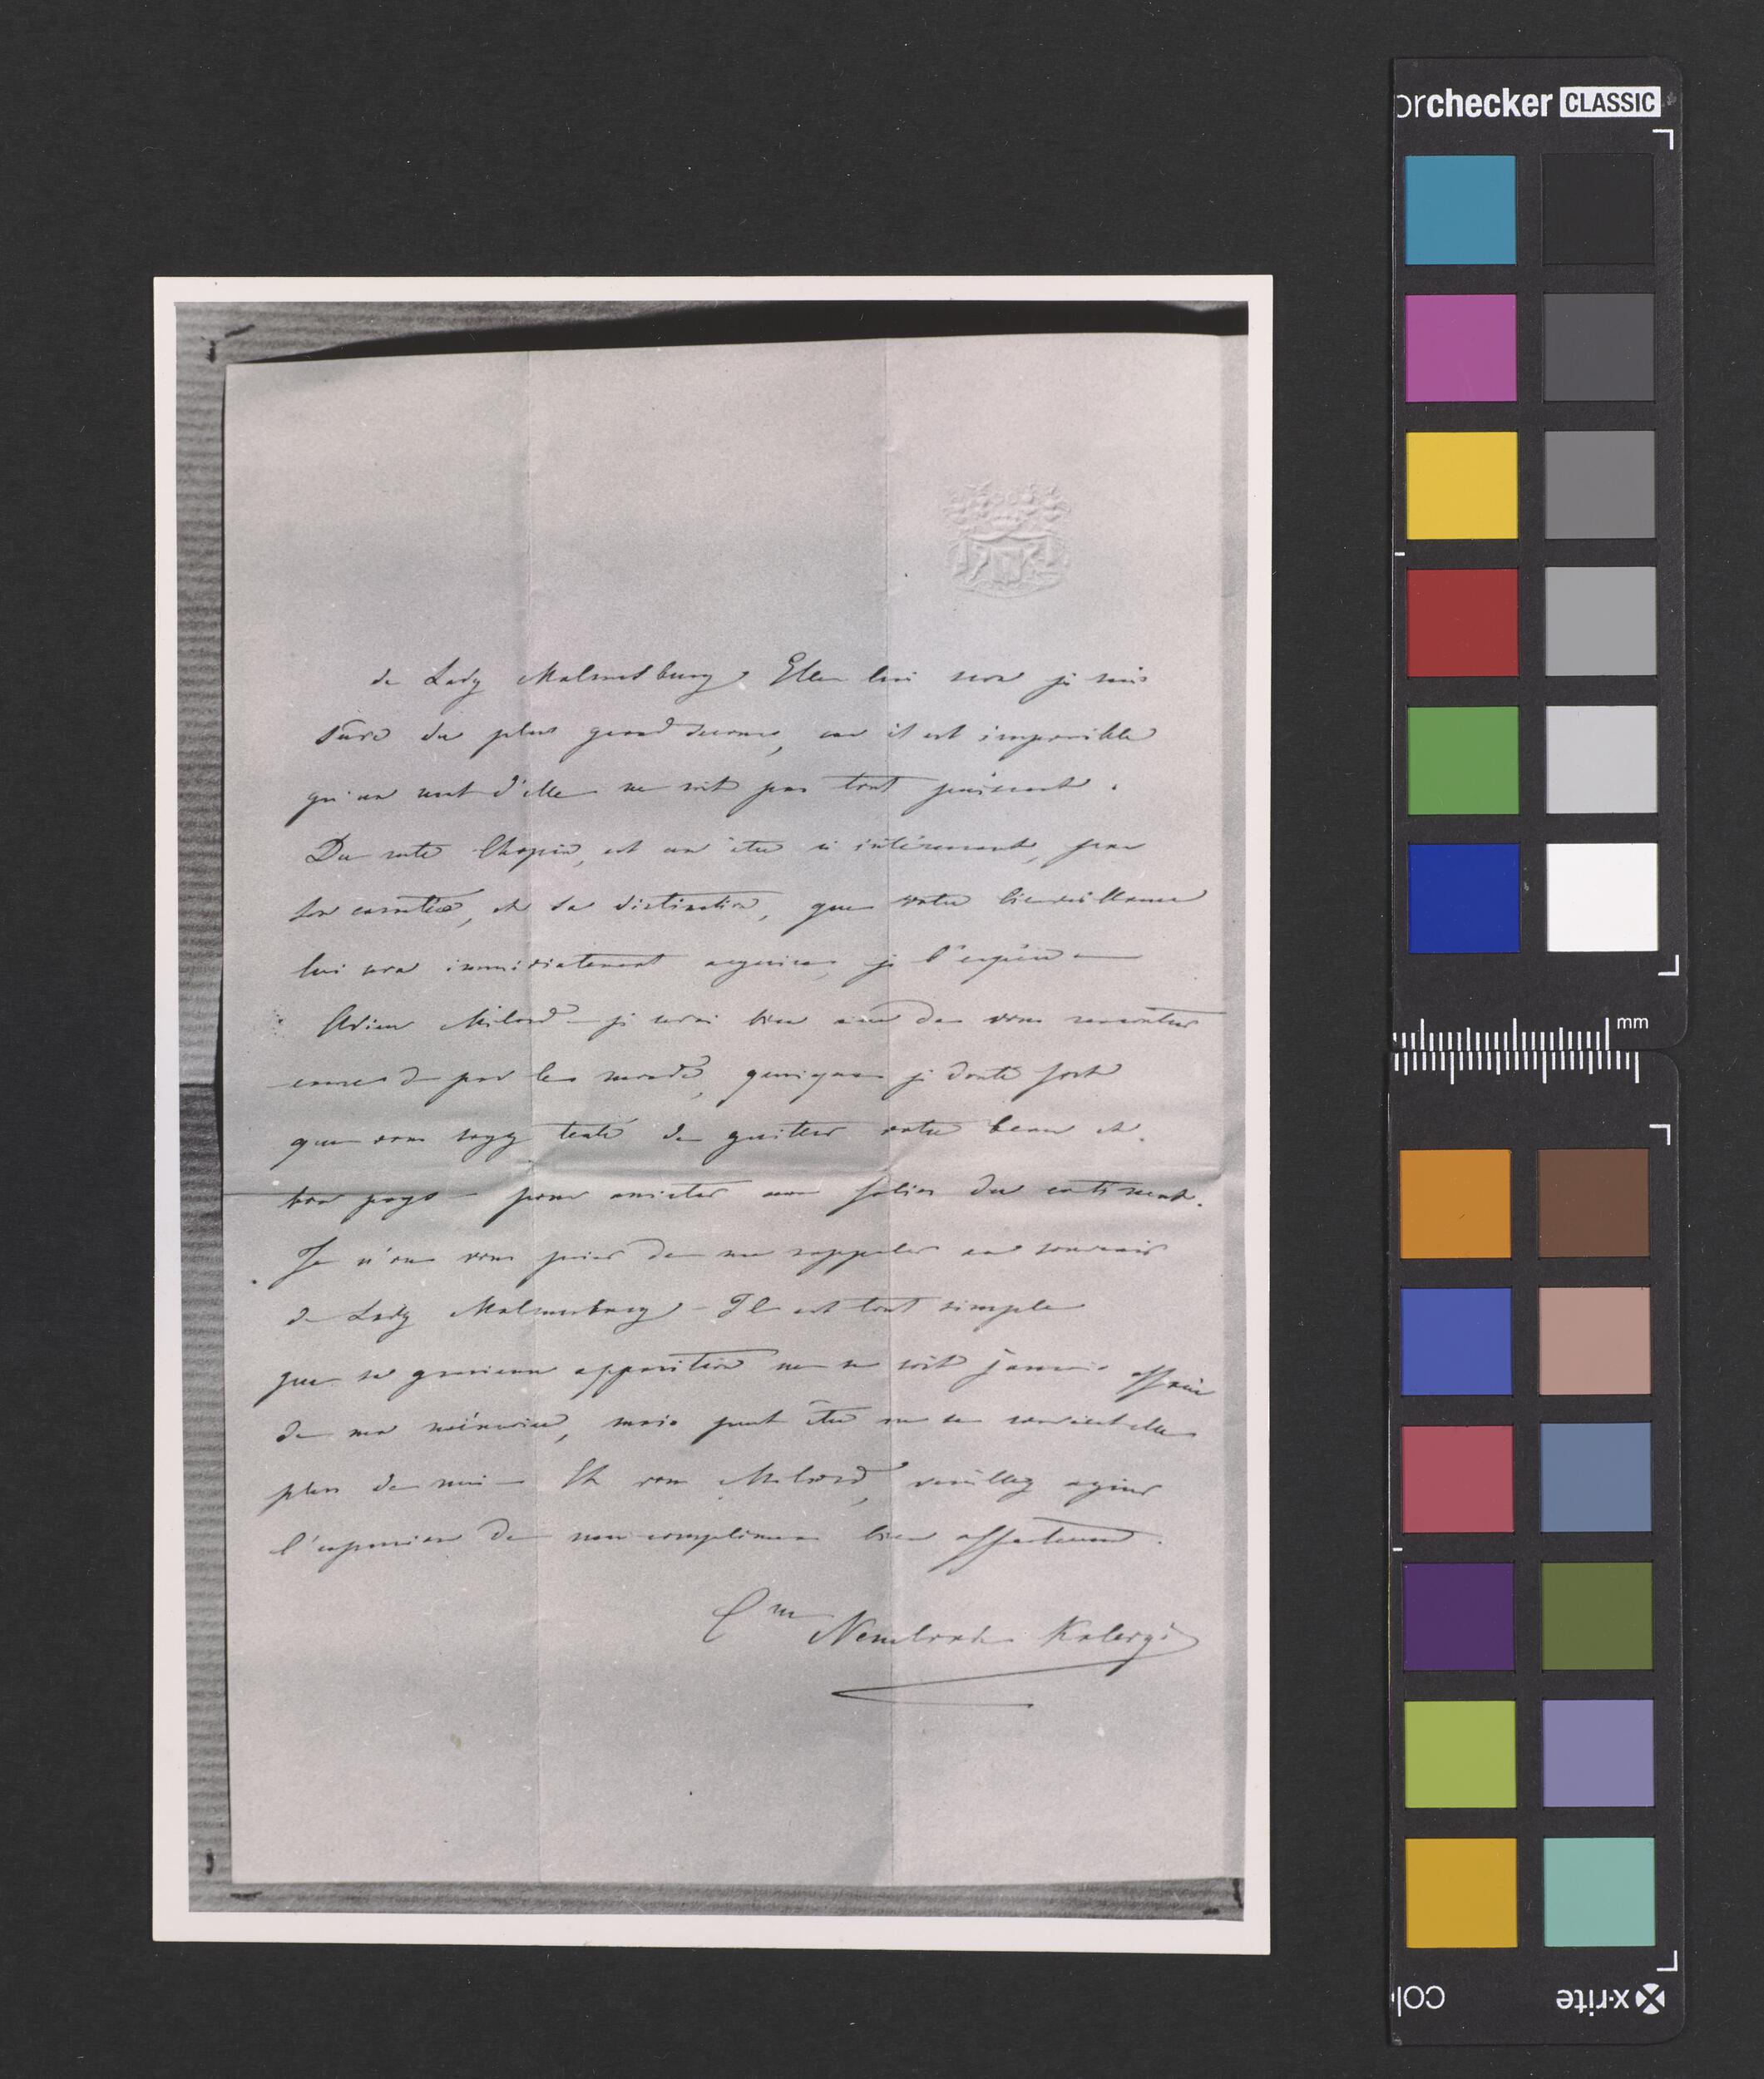 de Lady Malmesbury. Elle lui sera je suis
sûre du plus grand secours, car il est impossible
qu'un mot d'elle ne soit pas tout puissant.
Du reste Chopin, est un être si intéressant, par
son caractère, et sa distinction, que votre bienveillance
lui sera immédiatement acquise, je l'espère —
Adieu Milord — je serai bien aise de vous rencontrer
encore de par le monde, quoique je doute fort
que vous soyez tenté de quitter votre beau et
bon pays — pour assister aux folies du continent.
Je n'ose vous prier de me rappeler au souvenir
de Lady Malmesbury — Il est tout simple
que sa gracieuse apparition ne se soit jamais effacée
de ma mémoire, mais peut être ne se souvient elle
plus de moi — Et vous Milord, veuillez agréer
l'expression de mes compliments bien affectueux.
Css Nesselrode Kalergi
orchecker CLASSIC
mm
x-rite
col